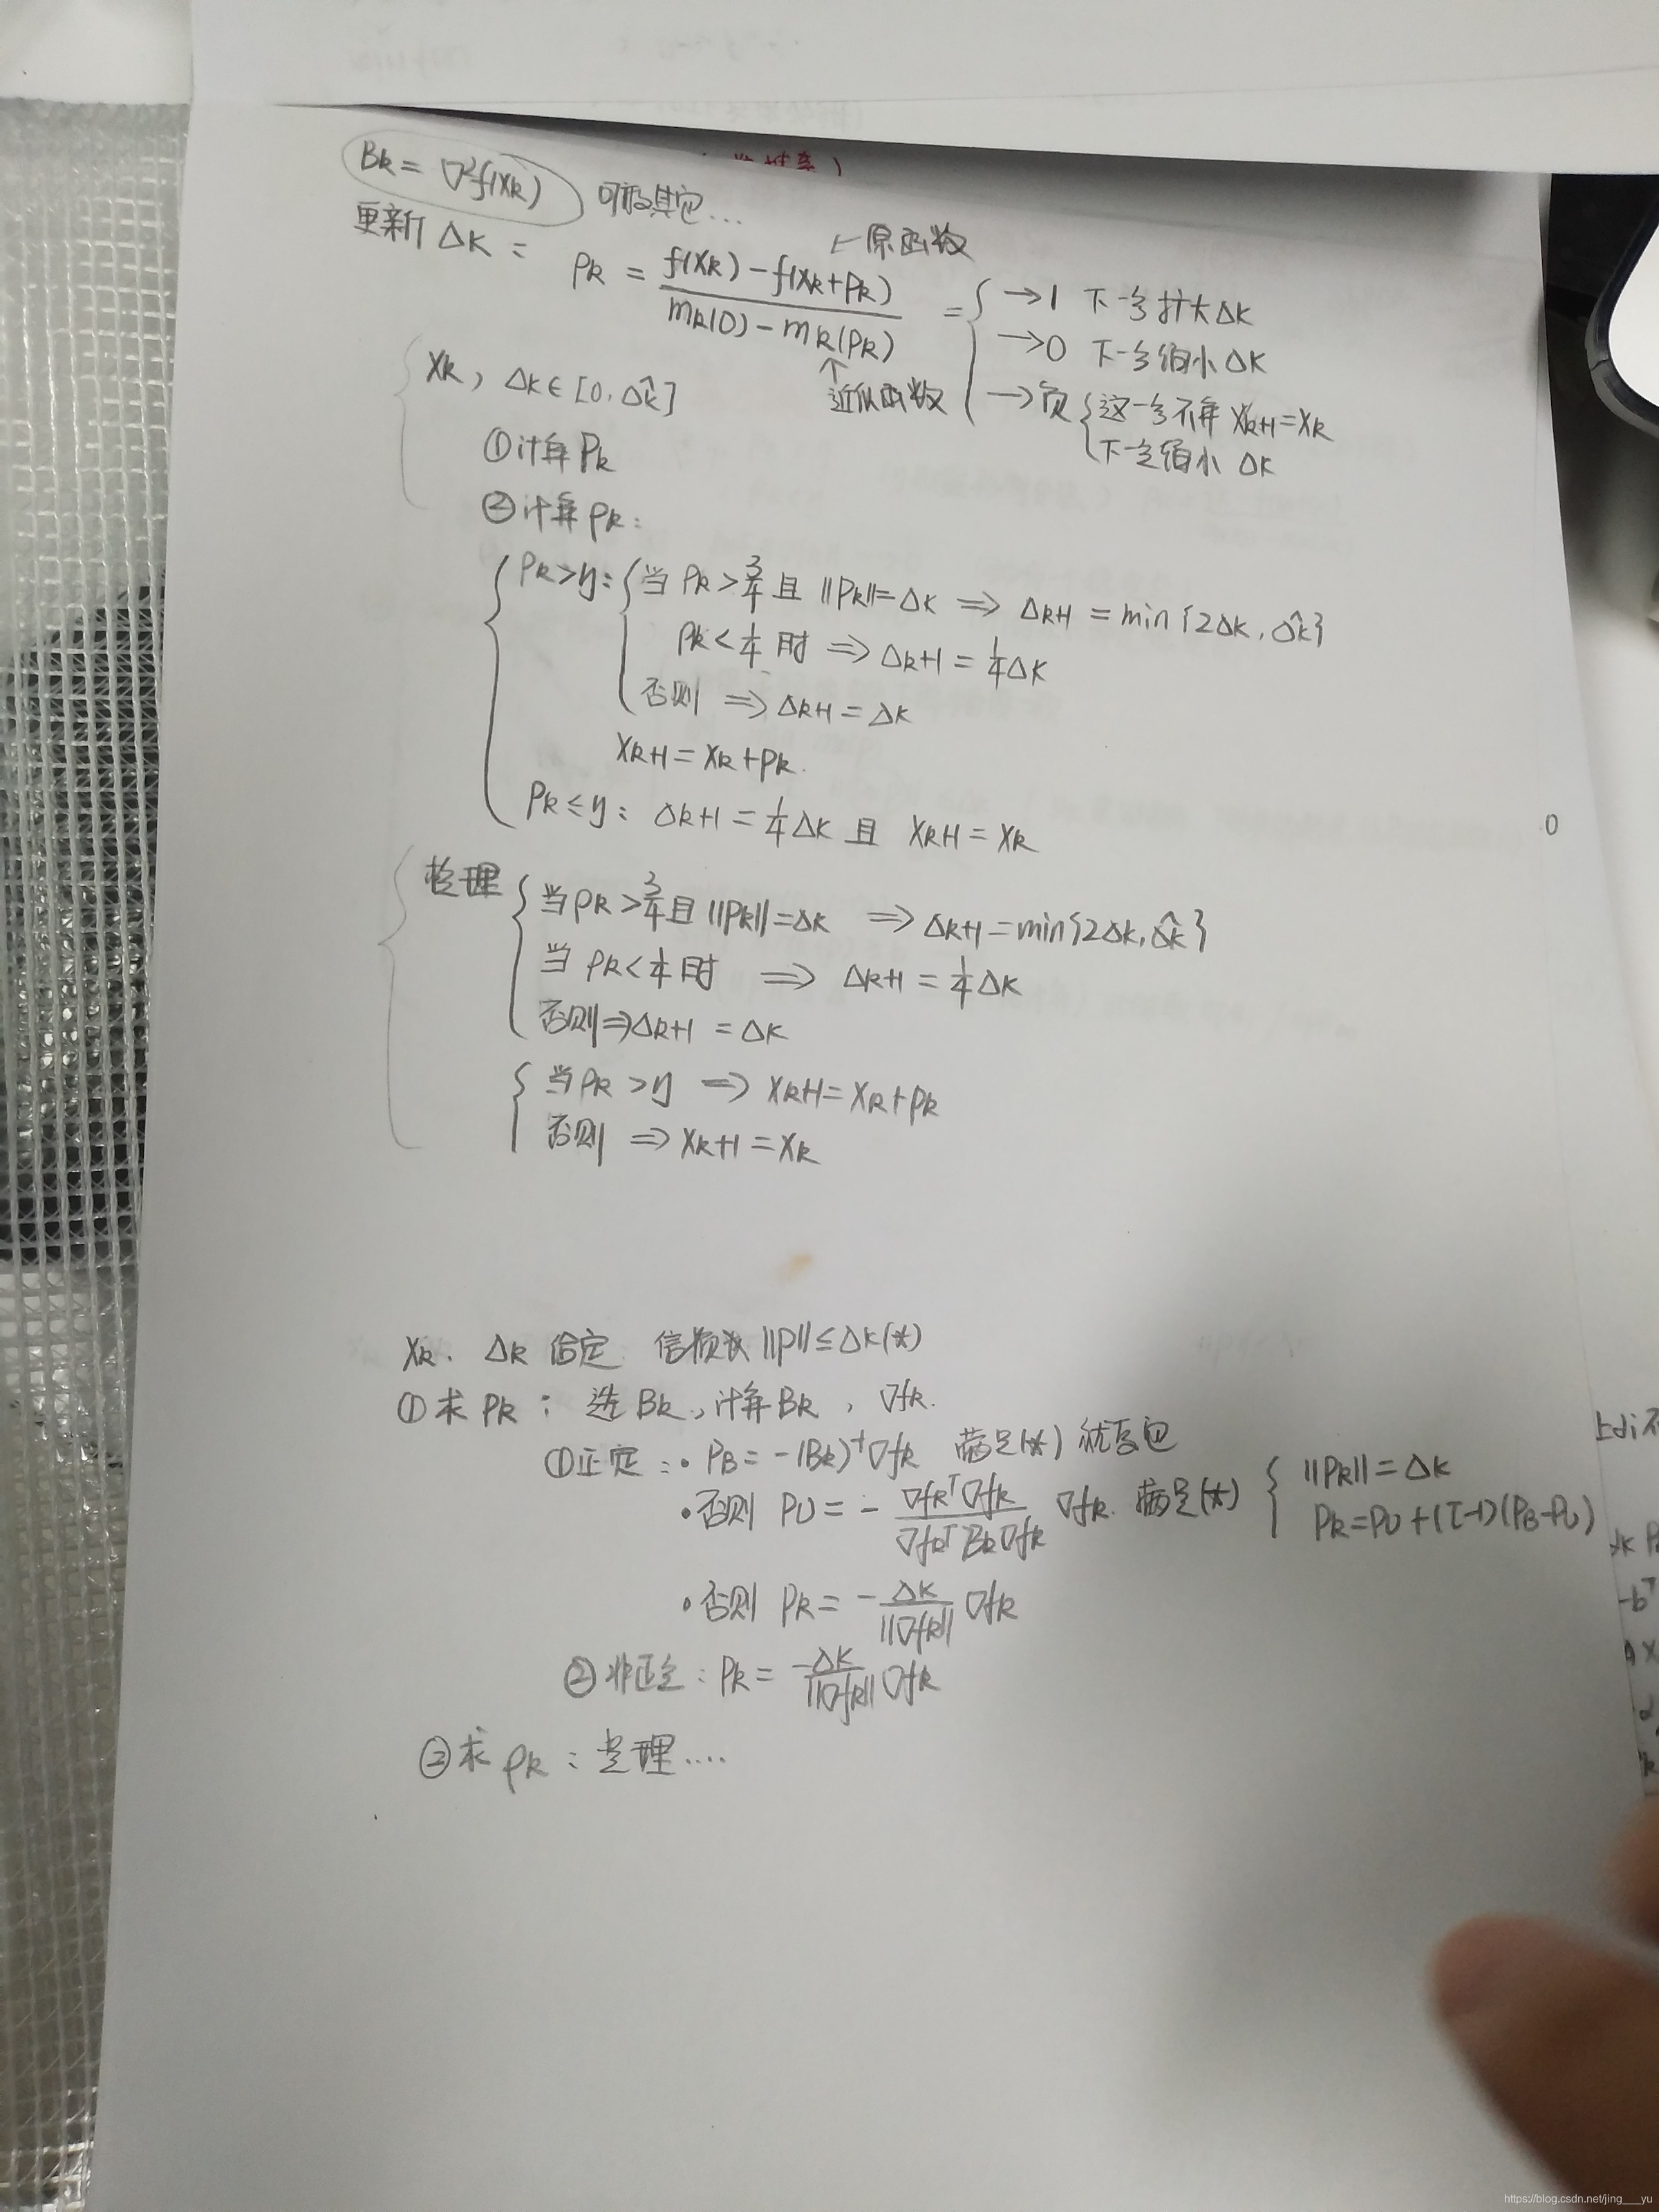 Bk = ∇²f(xk) 可取其它...
更新 Δk：
ρk = f(xk) - f(xk+pk) / mk(0) - mk(pk) = { →1 下一步扩大Δk
←原函数
→0 下一步缩小Δk
→负 { 这一步不算 xk+1 = xk
下一步缩小 Δk
↑近似函数
xk, Δk ∈ [0, Δ̂k]
①计算Pk
②计算ρk：
ρk > η: { 当 ρk > 3/4 且 ‖Pk‖ = Δk ⇒ Δk+1 = min{2Δk, Δ̂k}
ρk < 1/4 时 ⇒ Δk+1 = 1/4 Δk
否则 ⇒ Δk+1 = Δk
xk+1 = xk + pk.
ρk ≤ η: Δk+1 = 1/4 Δk 且 xk+1 = xk
0
整理 { 当 ρk > 3/4 且 ‖Pk‖ = Δk ⇒ Δk+1 = min{2Δk, Δ̂k}
当 ρk < 1/4 时 ⇒ Δk+1 = 1/4 Δk
否则 ⇒ Δk+1 = Δk
{ 当 ρk > η ⇒ xk+1 = xk + pk
否则 ⇒ xk+1 = xk
xk. Δk 给定 ‖p‖ ≤ Δk (*)
①求 Pk：选 Bk, 计算 Bk, ∇fk.
①正定：• PB = -(Bk)⁻¹∇fk 满足(*)
•否则 PU = - ∇fkᵀ∇fk / ∇fkᵀBk∇fk ∇fk. 满足(*) { ‖Pk‖ = Δk
Pk = PU + (τ-1)(PB-PU)
•否则 Pk = - Δk / ‖∇fk‖ ∇fk
②非正定：Pk = -Δk / ‖∇fk‖ ∇fk
②求 ρk：整理....
https://blog.csdn.net/jing___yu